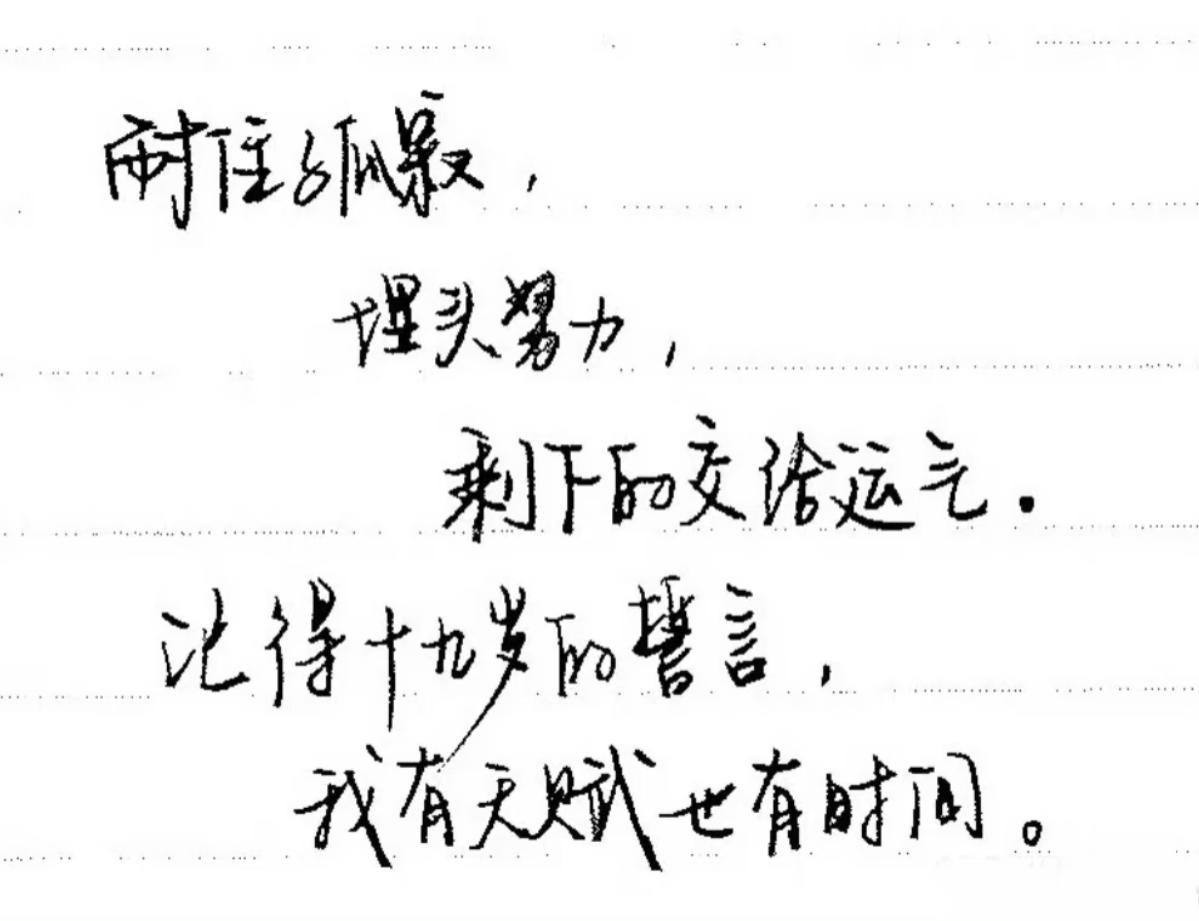 耐住孤寂,
埋头努力,
剩下的交给运气.
记得十九岁的誓言,
我有天赋也有时间。